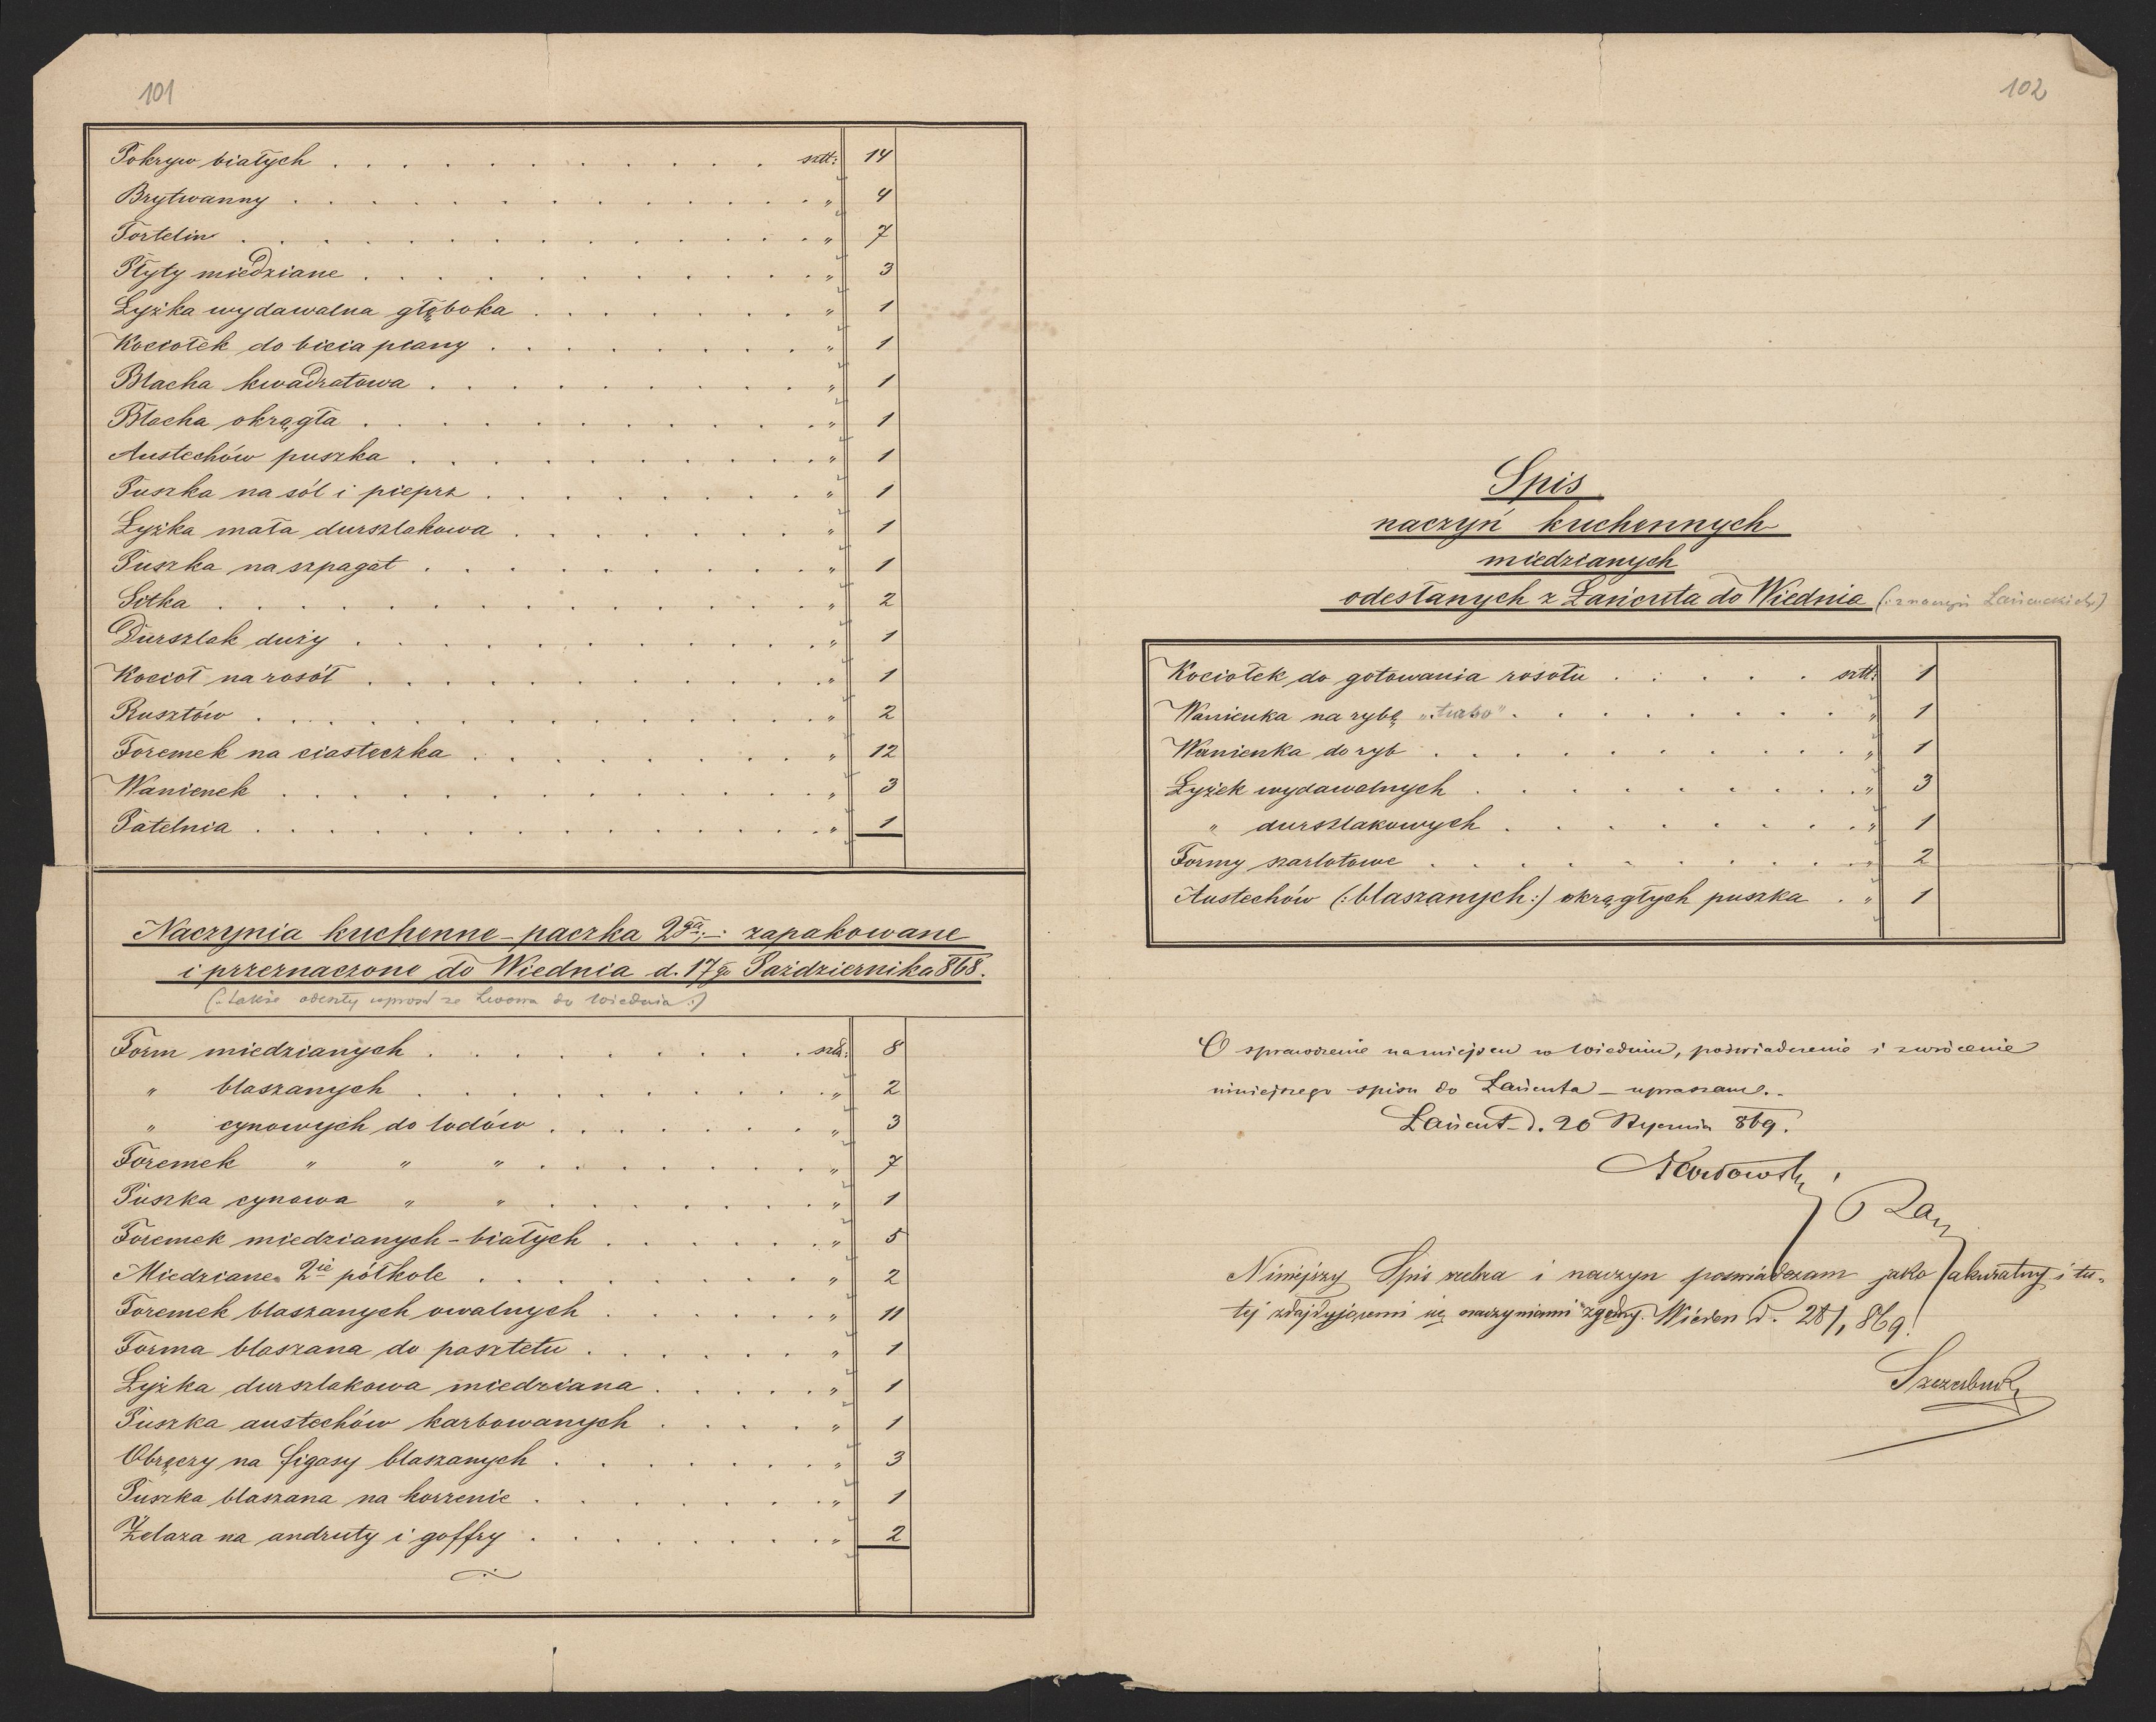 101
Pokryw białych . . . . . . . . . . . sztt: 14
Brytwanny . . . . . . . . . . . . „ 4
Tortelin . . . . . . . . . . . . „ 7
Płyty miedziane . . . . . . . . . . „ 3
Łyżka wydawalna głęboka . . . . . . . „ 1
Kociołek do bicia piany . . . . . . . . „ 1
Blacha kwadratowa . . . . . . . . . „ 1
Blacha okrągła . . . . . . . . . . „ 1
Austechów puszka . . . . . . . . . „ 1
Puszka na sól i pieprz . . . . . . . . „ 1
Łyżka mała durszlakowa . . . . . . . „ 1
Puszka na szpagat . . . . . . . . . „ 1
Sitka . . . . . . . . . . . . . „ 2
Durszlak duży . . . . . . . . . . „ 1
Kocioł na rosół . . . . . . . . . . „ 1
Rusztów . . . . . . . . . . . . „ 2
Foremek na ciasteczka . . . . . . . . „ 12
Wanienek . . . . . . . . . . . . „ 3
Patelnia . . . . . . . . . . . . „ 1
Naczynia kuchenne – paczka 2ga; –: zapakowane
i przeznaczone do Wiednia d. 17go Października 868.
(: także odeszły wprost ze Lwowa do Wiednia :)
Form miedzianych . . . . . . . . . sztt: 8
„ blaszanych . . . . . . . . . „ 2
„ cynowych do lodów . . . . . . . „ 3
Foremek „ „ „ . . . . . . . „ 7
Puszka cynowa „ „ . . . . . . . „ 1
Foremek miedzianych – białych . . . . . . „ 5
Miedziane 2ie półkole . . . . . . . . „ 2
Foremek blaszanych owalnych . . . . . . „ 11
Forma blaszana do pasztetu . . . . . . „ 1
Łyżka durszlakowa miedziana . . . . . „ 1
Puszka austechów karbowanych . . . . . „ 1
Obręczy na figasy blaszanych . . . . . . „ 3
Puszka blaszana na korzenie . . . . . . „ 1
Żelaza na andruty i goffry . . . . . . „ 2
102
Spis
naczyń kuchennych
miedzianych
odesłanych z Łańcuta do Wiednia (: z naczyń Łańcuckich :)
Kociołek do gotowania rosołu . . . . . sztt: 1
Wanienka na rybę „turbo" . . . . . . . . „ 1
Wanienka do ryb . . . . . . . . . . „ 1
Łyżek wydawalnych . . . . . . . . . „ 3
„ durszlakowych . . . . . . . . „ 1
Formy szarlotowe . . . . . . . . . „ 2
Austechów (: blaszanych :) okrągłych puszka . „ 1
O sprawdzenie na miejscu w Wiedniu, poświadczenie i zwrócenie
niniejszego spisu do Łańcuta – upraszam. –
Łańcut d. 20 Stycznia 869.
Niniejszy Spis srebra i naczyn poswiadczam jako akuratny i tu-
tej zdajdującemi się naczyniami zgodny. Wieden d. 28/1 869.